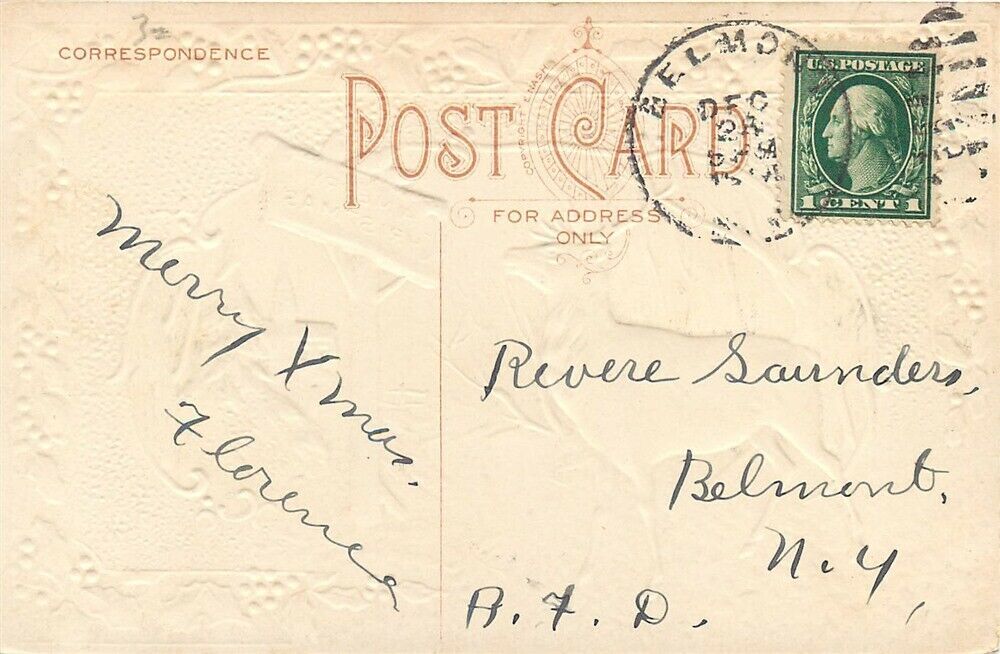 3=
CORRESPONDENCE
POST CARD
COPYRIGHT E. NASH
FOR ADDRESS
ONLY
BELMONT
DEC
U.S. POSTAGE
1 CENT 1
Merry Xmas.
Florence
Revere Saunders,
Belmont,
N.Y,
R.F.D.